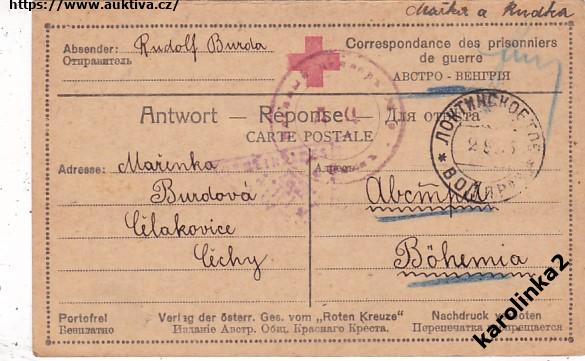 https://www.auktiva.cz/
Mařka a Rudka
Absender: Rudolf Burda
Отправитель
Correspondance des prisonniers
de guerre
АВСТРО - ВЕНГРІЯ
Antwort — Réponse — Для отвѣта
CARTE POSTALE
Adresse: Mařenka
Адресъ:
Burdová
Čelakovice
Čechy
Австрія
Böhemia
ЛОКТИНСКОЕ
Portofrei
Безплатно
Verlag der österr. Ges. vom „Roten Kreuze"
Изданіе Австр. Общ. Краснаго Креста.
Nachdruck verboten
Перепечатка воспрещается
karolinka2